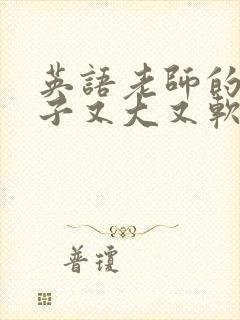 英語老師的
子又大又軟
普瓊